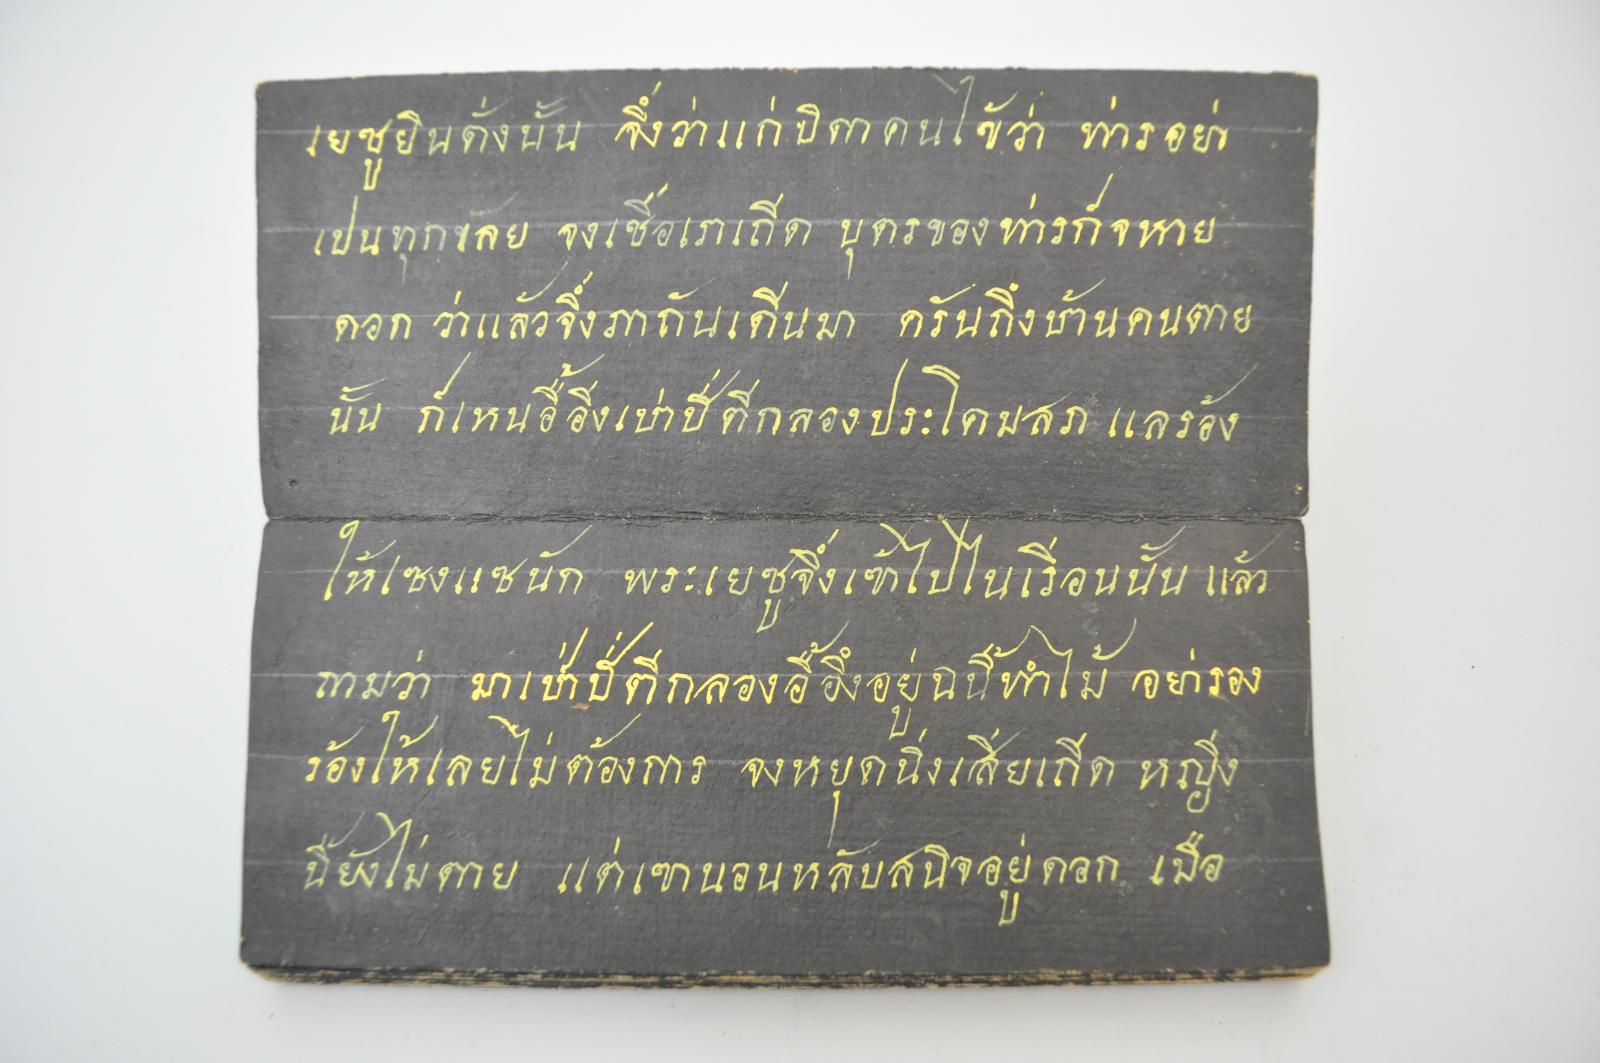 เยซูยินดั่งนั้น จึ่งว่าแก่บิดาคนไข้ว่า ท่ารอย่า
เปนทุกขเลย จงเชื่อเราเถีด บุตรของท่ารก็จหาย
ดอก ว่าแล้วจึ่งภากันเดีนมา ครั้นถึงบ้านคนตาย
นั้น ก็เหนอื้อึงเป่าปี่ตีกลองประโคมสภ แลร้อง
ให้เซงแซนัก พระเยซูจึ่งเข้าไปไนเรือนนั้น แล้ว
ถามว่า มาเป่าปี่ตีกลองอื้อึงอยู่ฉนี้ทำไม้ อย่ารอง
ร้องให้เลยไม่ต้องการ จงหยุดนิ่งเสียเถีด หญิง
นี้ยังไม่ตาย แต่เขานอนหลับสนิจอยู่ดอก เมื่อ